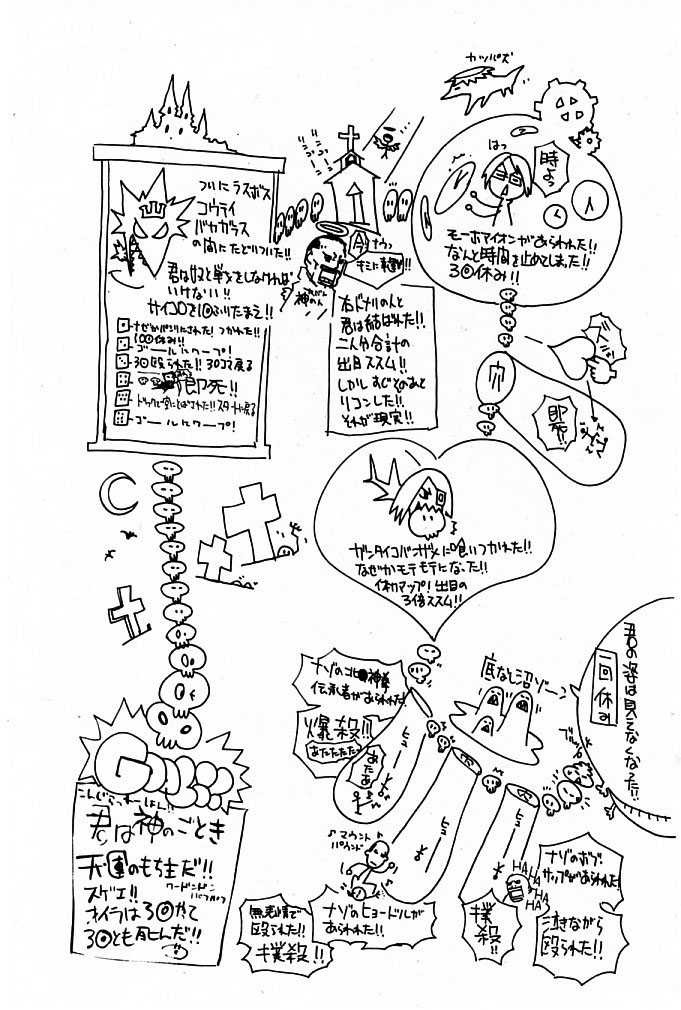 カッパズ
はっ
時よっ
モーホマイオンがあらわれた!!
なんと時間を止めてしまった!!
3回休み!!
穴
即死!!
ついにラスボス
コウテイ
バヤカラス
の間にたどりついた!!
君は奴と戦をしなければ
いけない!!
サイコロを1回ふりたまえ!!
1回休み!!
ゴールにワープ!
3回殴られた!! 30コマ戻る
即死!!
ゴールにワープ!
神のん
右ドナリのんと
君は結ばれた!!
二人分合計の
出目ススム!!
しかしすぐそのあと
リコンした!!
それが現実!!
ガンタイコバオザメに喰いつかれた!!
なぜかモテモテになった!!
体力アップ!出目の
3倍ススム!!
君の姿は見えなくなった!!
一回休み
底なし沼ゾーン
ナゾの北神拳
伝承者があらわれた!
爆殺!!
あたたたたっ
あたあ
ヒューーー
ヒューーー
ヒューーー
マウント
パウンド
ナゾのヒョードルが
あらわれた!!
無表情で
殴られた!!
撲殺!!
HAHAHAHA
ナゾのボブ
サップがあらわれた!
泣きながら
殴られた!!
撲殺!!
GOAL
こんぐらっちゅれーしょん!!
君は神のごとき
天運のもち主だ!!
スゲエ!!
オイラは3回やって
3回とも死んだ!!